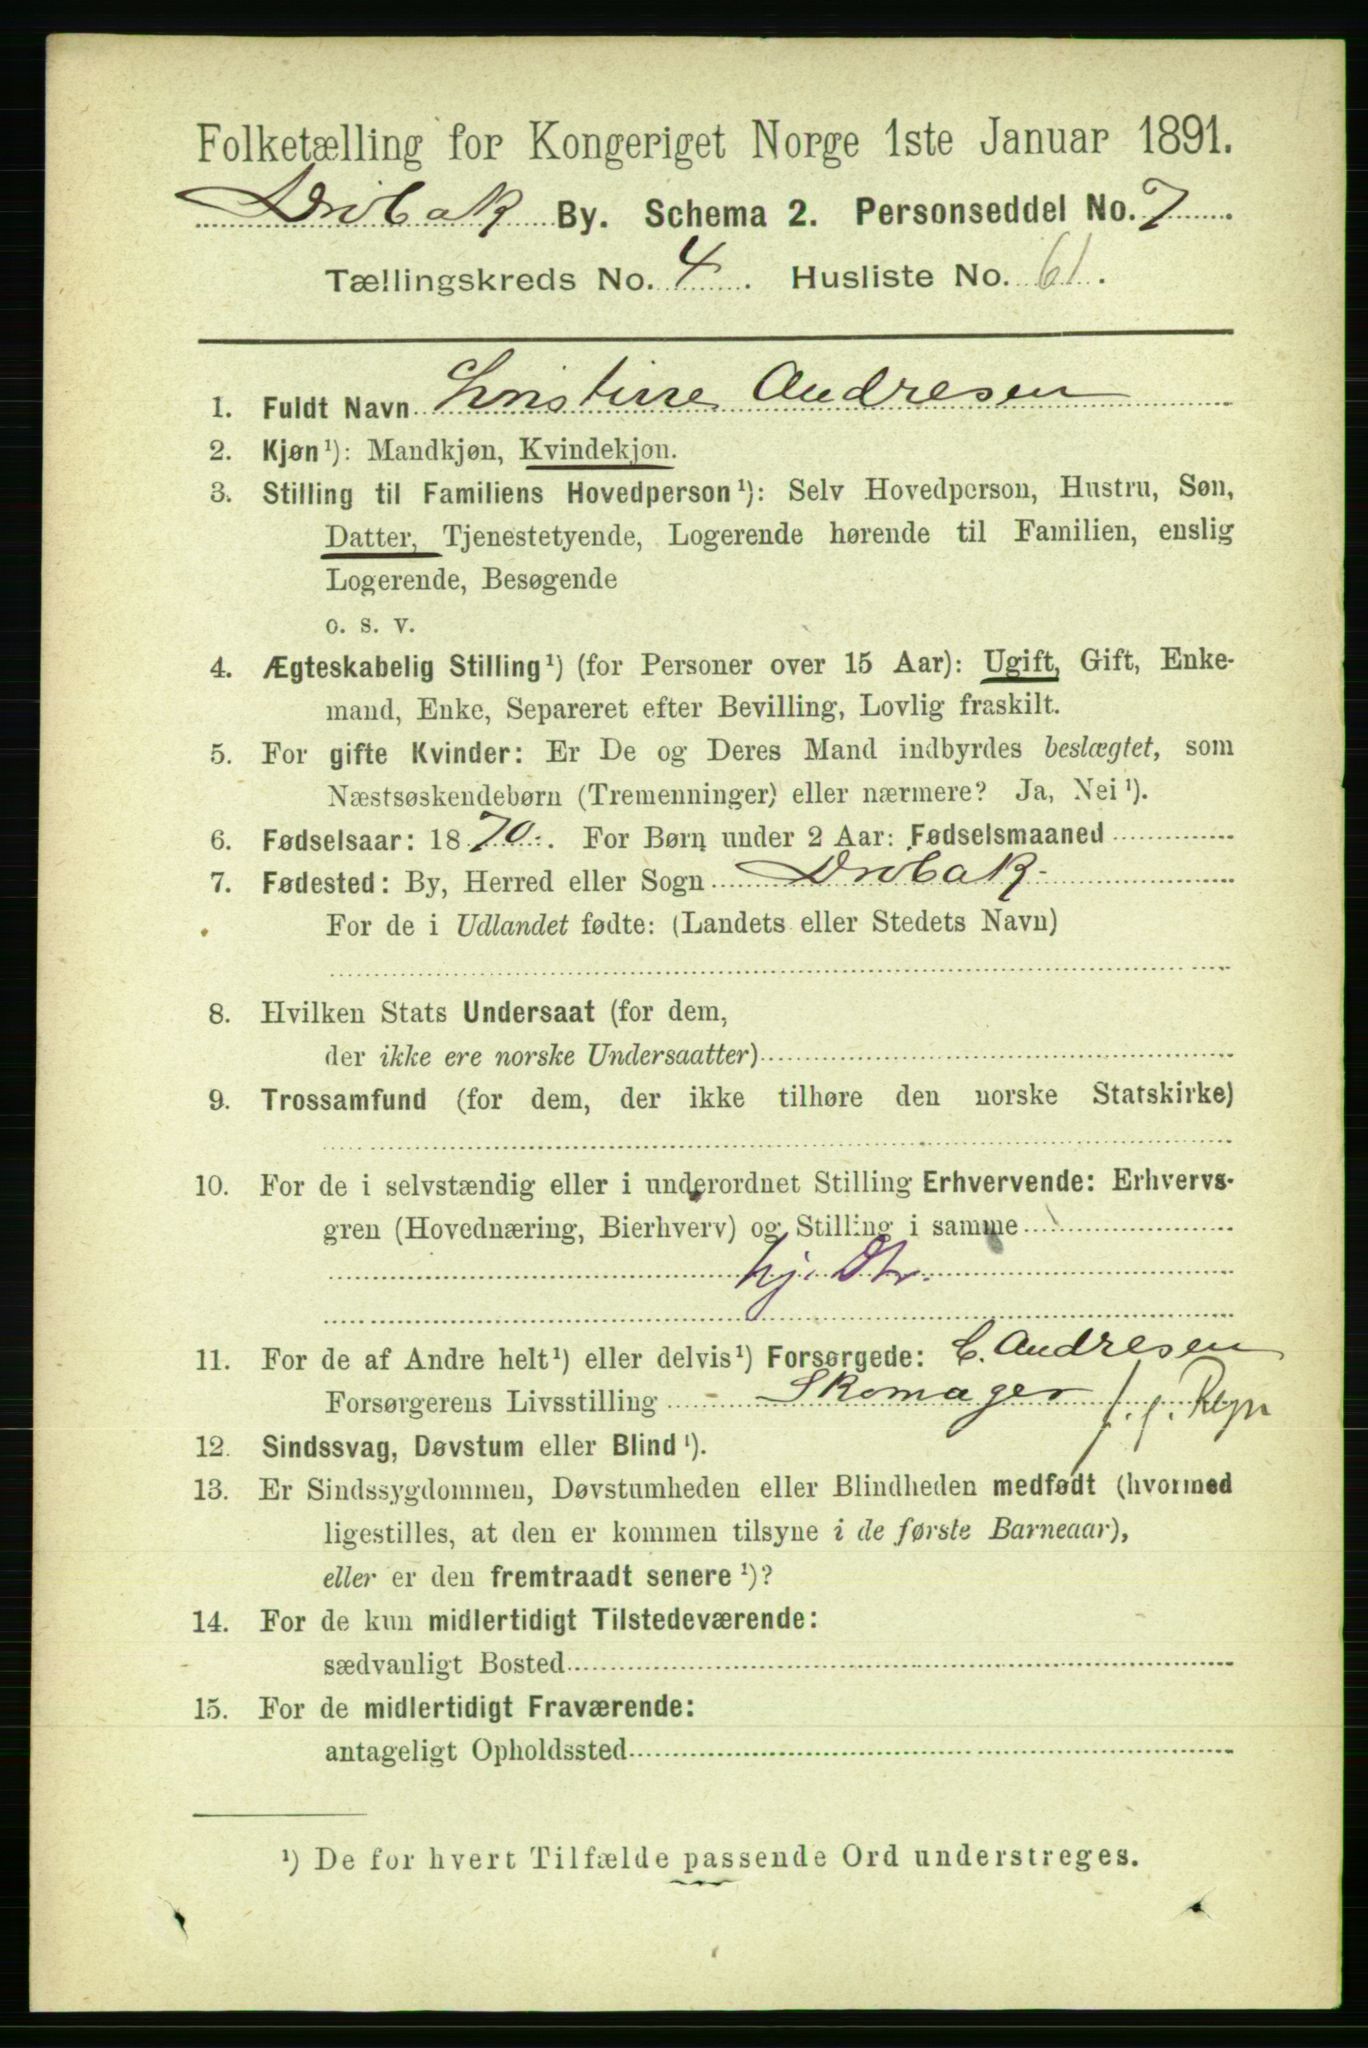 Folketælling for Kongeriget Norge 1ste Januar 1891.
Drøbak By. Schema 2. Personseddel No. 7.
Tællingskreds No. 4. Husliste No. 61.
1. Fuldt Navn Kristine Andresen
2. Kjøn¹): Mandkjøn, Kvindekjøn.
3. Stilling til Familiens Hovedperson¹): Selv Hovedperson, Hustru, Søn,
Datter, Tjenestetyende, Logerende hørende til Familien, enslig
Logerende, Besøgende
o. s. v.
4. Ægteskabelig Stilling¹) (for Personer over 15 Aar): Ugift, Gift, Enke-
mand, Enke, Separeret efter Bevilling, Lovlig fraskilt.
5. For gifte Kvinder: Er De og Deres Mand indbyrdes beslægtet, som
Næstsøskendebørn (Tremenninger) eller nærmere? Ja, Nei¹).
6. Fødselsaar: 1870. For Børn under 2 Aar: Fødselsmaaned
7. Fødested: By, Herred eller Sogn Drøbak
For de i Udlandet fødte: (Landets eller Stedets Navn)
8. Hvilken Stats Undersaat (for dem,
der ikke ere norske Undersaatter)
9. Trossamfund (for dem, der ikke tilhøre den norske Statskirke)
10. For de i selvstændig eller i underordnet Stilling Erhvervende: Erhvervs-
gren (Hovednæring, Bierhverv) og Stilling i samme
hj. Dtr.
11. For de af Andre helt¹) eller delvis¹) Forsørgede: C. Andresen
Forsørgerens Livsstilling Skomager f. j. Regn
12. Sindssvag, Døvstum eller Blind¹).
13. Er Sindssygdommen, Døvstumheden eller Blindheden medfødt (hvormed
ligestilles, at den er kommen tilsyne i de første Barneaar),
eller er den fremtraadt senere¹)?
14. For de kun midlertidigt Tilstedeværende:
sædvanligt Bosted
15. For de midlertidigt Fraværende:
antageligt Opholdssted
¹) De for hvert Tilfælde passende Ord understreges.